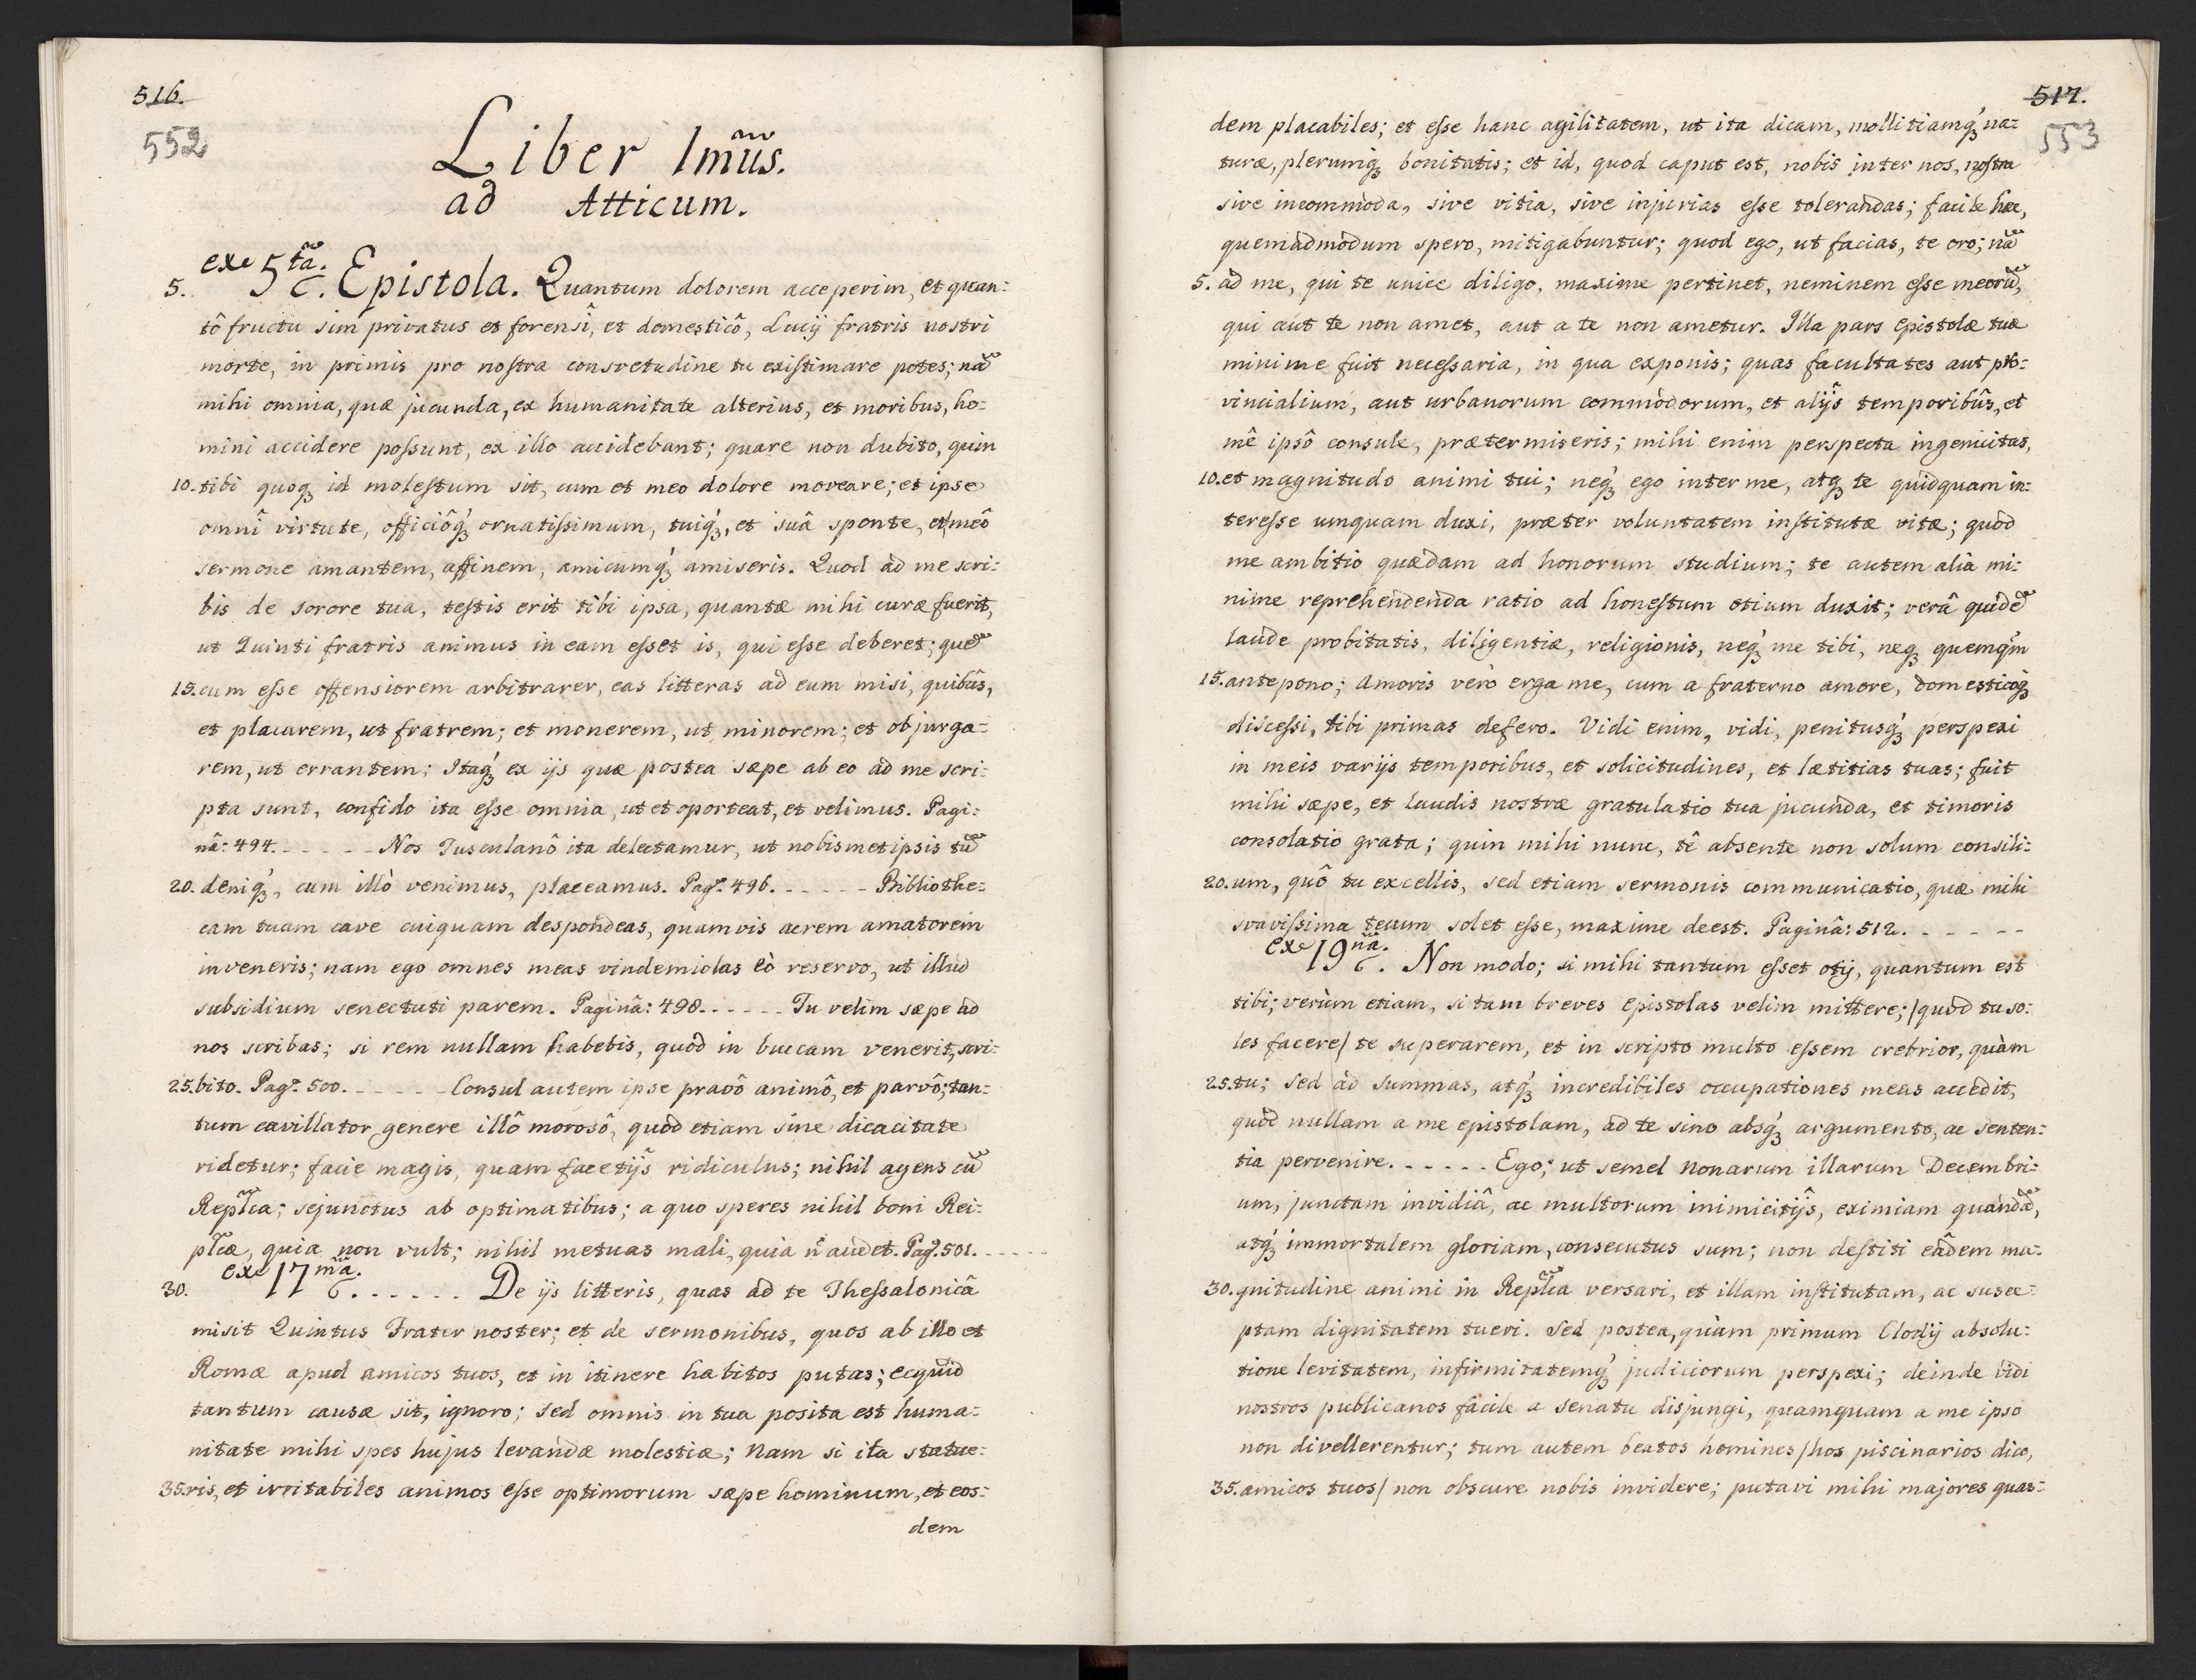 516.
552
Liber Imũs.
ad Atticum.
exe 5tã.
5. C. Epistola. Quantum dolorem acceperim, et quan:
tô fructu sim privatus et forensî, et domesticô, Lucij fratris nostri
morte, in primis pro nostra consvetudine tu existimare potes; nã
mihi omnia, quæ jucunda, ex humanitate alterius, et moribus, ho:
mini accidere possunt, ex illo accidebant; quare non dubito, quin
10. tibi quoqꝫ id molestum sit, cum et meo dolore moveare; et ipse
omnî virtute, officiôqꝫ́ ornatissimum, tuiqꝫ́, et suâ sponte, et meô
sermone amantem, affinem, amicumqꝫ́ amiseris. Quod ad me scri:
bis de sorore tua, testis erit tibi ipsa, quantæ mihi curæ fuerit,
ut Quinti fratris animus in eam esset is, qui esse deberet; quẽ
15. cum esse offensiorem arbitrarer, eas litteras ad eum misi, quibûs,
et placarem, ut fratrem; et monerem, ut minorem; et objurga:
rem, ut errantem: Itaqꝫ́ ex ijs quæ postea sæpe ab eo ad me scri:
pta sunt, confido ita esse omnia, ut et oporteat, et velimus. Pagi:
nâ: 494. - - - - - Nos Tusculanô ita delectamur, ut nobismetipsis tũ
20. deniqꝫ́, cum illò venimus, placeamus. Pagᵉ. 496. - - - - - Bibliothe:
cam tuam cave cuiquam despondeas, quamvis acrem amatorem
inveneris; nam ego omnes meas vindemiolas eò reservo, ut illud
subsidium senectuti parem. Paginâ: 498. - - - - - Tu velim sæpe ad
nos scribas; si rem nullam habebis, quòd in buccam venerit, scri:
25. bito. Pagᵉ. 500. - - - - - Consul autem ipse pravô animô, et parvô; tan:
tum cavillator genere illô morosô, quòd etiam sine dicacitate
ridetur; facie magis, quam facetijs̑ ridiculus; nihil agens cũ
Repl̃ca; sejunctus ab optimatibus; a quo speres nihil boni Rei:
pl̃cæ, quia non vult; nihil metuas mali, quia ñ audet. Pagᵉ. 501. - - - -
exe 17mã.
30. C. - - - - - De ijs litteris, quas ad te Thessalonicâ
misit Quintus Frater noster; et de sermonibus, quos ab illo et
Romæ apud amicos tuos, et in itinere habitos putas; ecquid
tantum causæ sit, ignoro; sed omnis in tua posita est huma:
nitate mihi spes hujus levandæ molestiæ; Nam si ita statue:
35. ris, et irritabiles animos esse optimorum sæpe hominum, et eos:
dem
517.
553
dem placabiles; et esse hanc agilitatem, ut ita dicam, mollitiamqꝫ́ na:
turæ, plerumqꝫ bonitatis; et id, quod caput est, nobis inter nos, nostra
sive incommoda, sive vitia, sive injurias esse tolerandas; facile hæc,
quemadmodum spero, mitigabuntur; quod ego, ut facias, te oro; nã
5. ad me, qui te unicè diligo, maxime pertinet, neminem esse meorũ,
qui aut te non amet, aut a te non ametur. Illa pars Epistolæ tuæ
minime fuit necessaria, in qua exponis; quas facultates aut pro:
vincialium, aut urbanorum commodorum, et alijs̑ temporibûs, et
mê ipsô consule, prætermiseris; mihi enim perspecta ingenuitas,
10. et magnitudo animi tui; neqꝫ́ ego inter me, atqꝫ te quidquam in:
teresse umquam duxi, præter voluntatem institutæ vitæ; quòd
me ambitio quædam ad honorum studium; te autem alia mi:
nime reprehendenda ratio ad honestum otium duxit; verâ quidẽ
laude probitatis, diligentiæ, religionis, neqꝫ́ me tibi, neqꝫ quemq́m
15. antepono; Amoris verò erga me, cum a fraterno amore, domesticoqꝫ
discessi, tibi primas defero. Vidi enim, vidi, penitusqꝫ́ perspexi
in meis varijs temporibus, et solicitudines, et lætitias tuas; fuit
mihi sæpe, et laudis nostræ gratulatio tua jucunda, et timoris
consolatio grata; quin mihi nunc, tê absente non solum consili:
20. um, quô tu excellis, sed etiam sermonis communicatio, quæ mihi
svavissima tecum solet esse, maxime deest. Paginâ: 512. - - - - -
exe 19nã.
C. Non modo; si mihi tantum esset otij, quantum est
tibi; verùm etiam, si tam breves Epistolas velim mittere; /quòd tu so:
les facere/ te superarem, et in scripto multo essem crebrior, quàm
25. tu; sed ad summas, atqꝫ́ incredibiles occupationes meas accedit,
quòd nullam a me epistolam, ad te sino absqꝫ́ argumento, ac senten:
tia pervenire. - - - - - Ego; ut semel Nonarum illarum Decembri:
um, junctam invidiâ, ac multorum inimicitijs̑, eximiam quandã,
atqꝫ́ immortalem gloriam, consecutus sum; non destiti eâdem ma:
30. gnitudine animi in Repl̃ca versari, et illam institutam, ac susce:
ptam dignitatem tueri. Sed postea, quàm primum Clodij absolu:
tione levitatem, infirmitatemqꝫ́ judiciorum perspexi; deinde vidi
nostros publicanos fâcile a senatu disjungi, quamquam a me ipso
non divellerentur; tum autem beatos homines /hos piscinarios dico,
35. amicos tuos/ non obscure nobis invidere; putavi mihi majores quas: